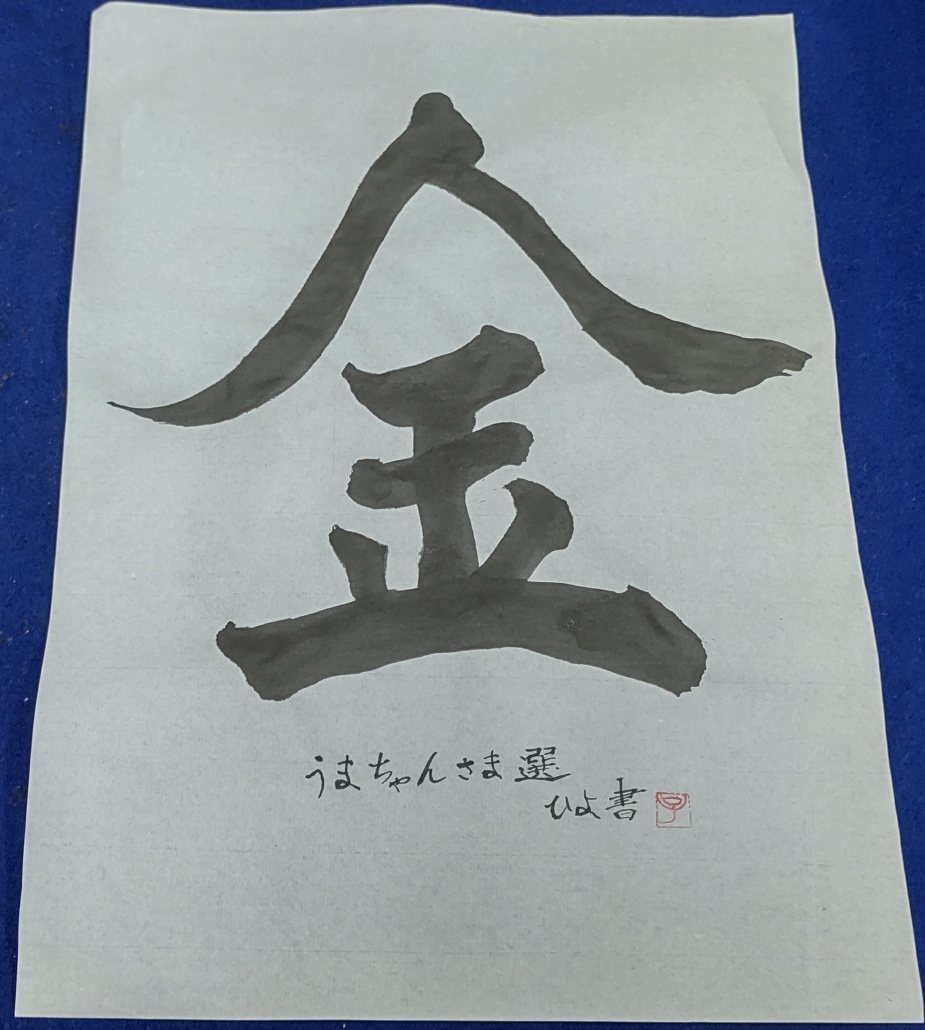 金
うまちゃんさま選
ひよ書